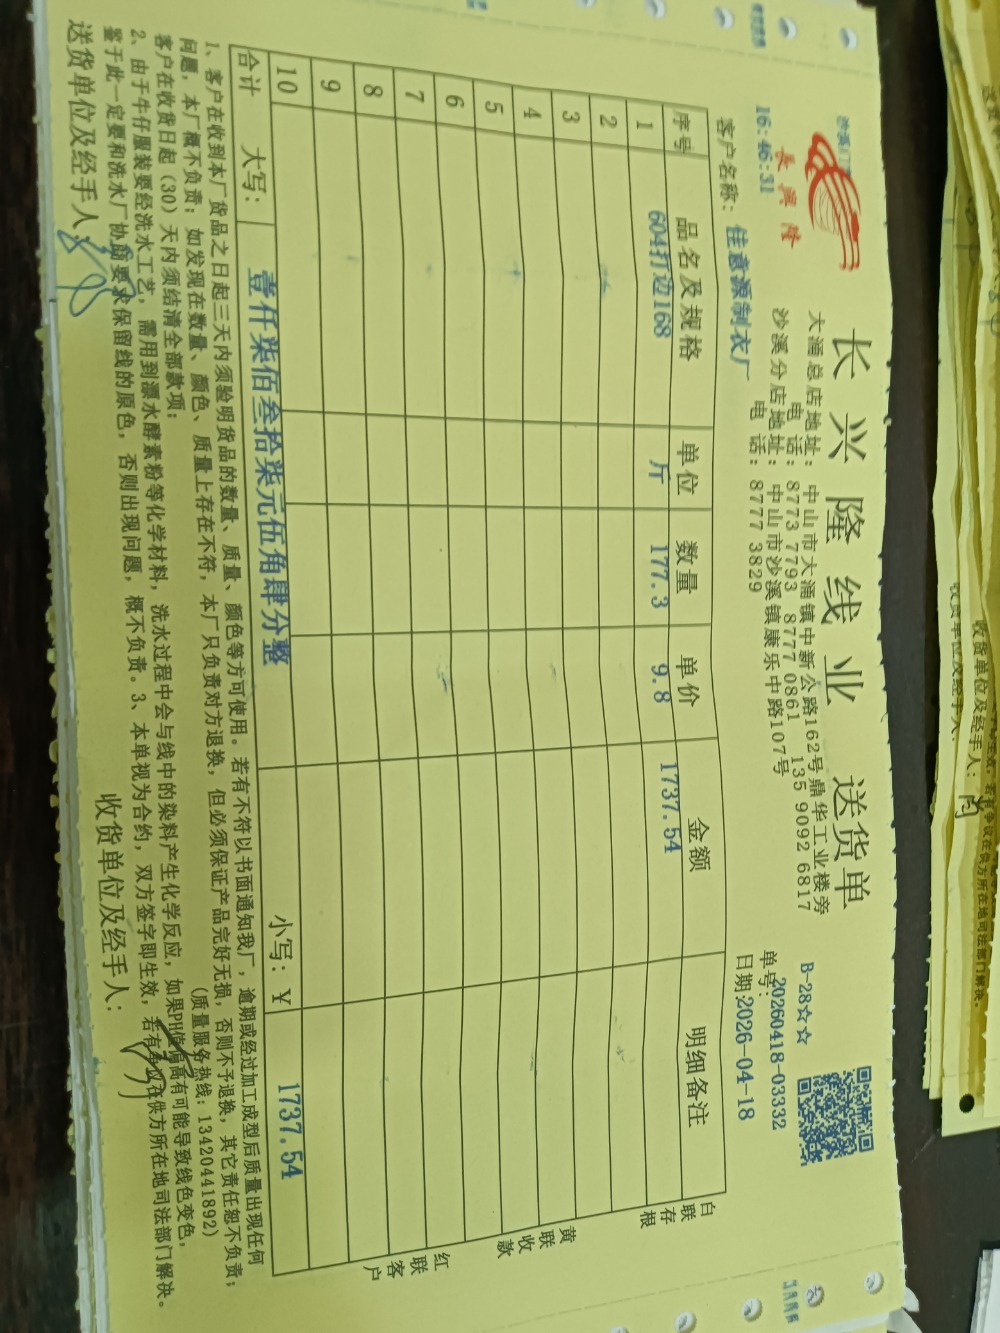 长兴隆线业 送货单
長興隆
16:46:31
大涌总店地址：中山市大涌镇中新公路162号鼎华工业楼旁
电 话：8773 7793 8777 0861 135 9092 6817
沙溪分店地址：中山市沙溪镇康乐中路107号
电 话：8777 3829
B-28☆☆
单号：20260418-03332
日期：2026-04-18
客户名称：佳意源制衣厂
序号 品名及规格 单位 数量 单价 金额 明细备注
1 604打边168 斤 177.3 9.8 1737.54
2
3
4
5
6
7
8
9
10
合计 大写：壹仟柒佰叁拾柒元伍角肆分整 小写：¥ 1737.54
白联存根
黄联收款
红联客户
1、客户在收到本厂货品之日起三天内须验明货品的数量、质量、颜色等方可使用。若有不符以书面通知我厂，逾期或经过加工成型后质量出现任何
问题，本厂概不负责；如发现在数量、颜色、质量上存在不符，本厂只负责对方退换，但必须保证产品完好无损，否则不予退换，其它责任恕不负责；
客户在收货日起（30）天内须结清全部款项； （质量服务热线：13420441892）
2、由于牛仔服装要经洗水工艺，需用到漂水酵素粉等化学材料，洗水过程中会与线中的染料产生化学反应，如果PH值偏高有可能导致线色变色，
鉴于此一定要和洗水厂协商要求保留线的原色，否则出现问题，概不负责。3、本单视为合约，双方签字即生效，若有争议在供方所在地司法部门解决。
送货单位及经手人： 收货单位及经手人：
收货单位及经手人：